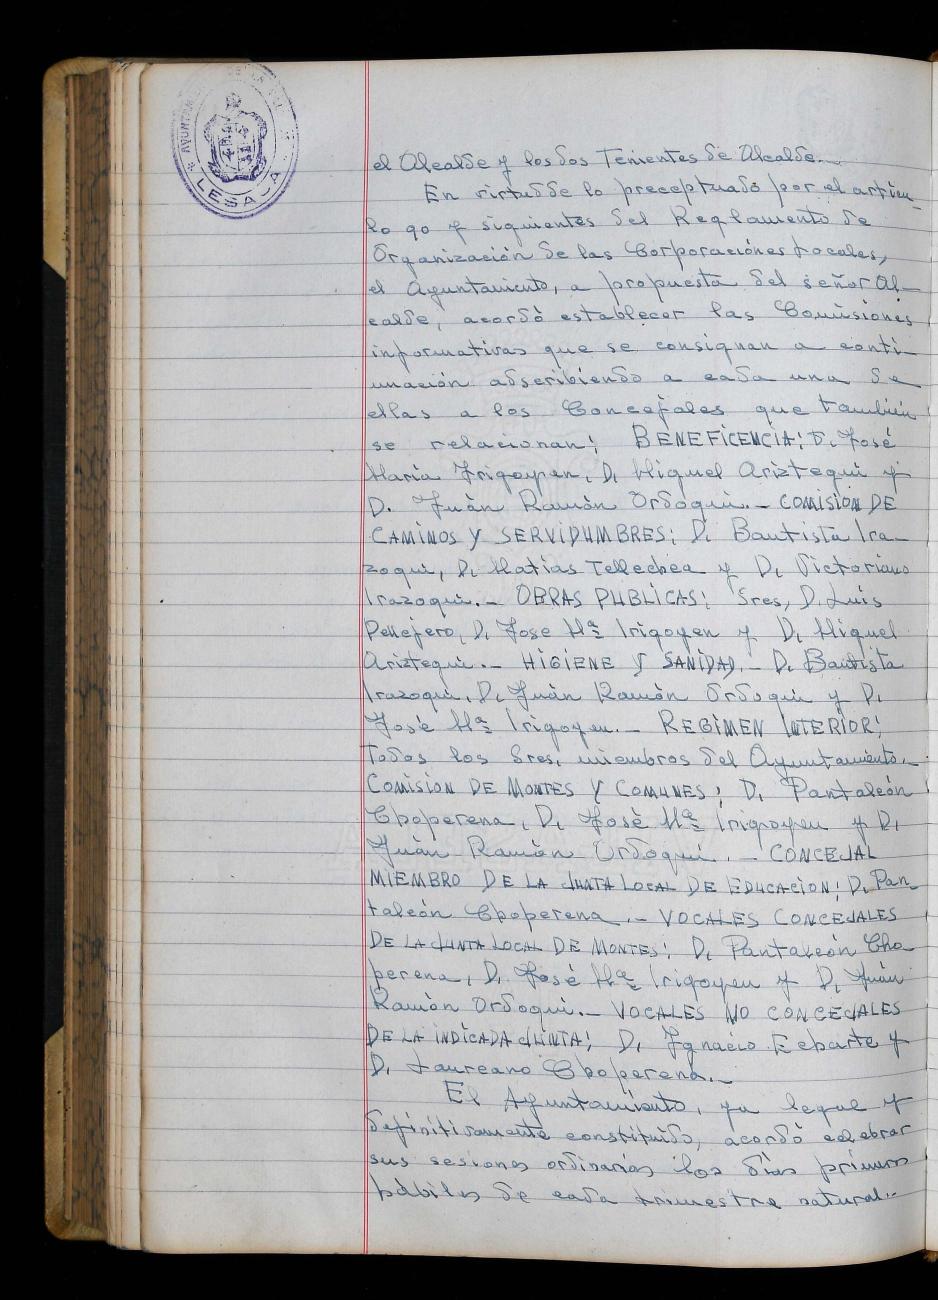 AYUNTAMIENTO
LESACA
el Alcalde y los dos Tenientes de Alcalde.-
En virtud de lo preceptuado por el artícu-
lo 90 y siguientes del Reglamento de
Organización de las Corporaciones Locales,
el Ayuntamiento, a propuesta del señor Al-
calde, acordó establecer las Comisiones
informativas que se consignan a conti-
nuación adscribiendo a cada una de
ellas a los Concejales que también
se relacionan: BENEFICENCIA: D. José
María Irigoyen, D. Miguel Ariztegui y
D. Juàn Ramòn Ordoqui.- COMISION DE
CAMINOS Y SERVIDUMBRES: D. Bautista Ira-
zoqui, D. Matías Tellechea y D. Victoriano
Irazoqui.- OBRAS PUBLICAS: Sres, D. Luis
Pellejero, D. Jose Mª Irigoyen y D. Miguel
Ariztegui.- HIGIENE Y SANIDAD.- D. Bautista
Irazoqui, D. Juàn Ramòn Ordoqui y D.
José Mª Irigoyen.- REGIMEN INTERIOR:
Todos los Sres, miembros del Ayuntamiento.-
COMISION DE MONTES Y COMUNES: D. Pantaleón
Choperena, D. Josè Mª Irigoyen y D.
Juàn Ramòn Ordoqui.- CONCEJAL
MIEMBRO DE LA JUNTA LOCAL DE EDUCACION: D. Pan-
taleón Choperena.- VOCALES CONCEJALES
DE LA JUNTA LOCAL DE MONTES: D. Pantaleón Cho-
perena, D. José Mª Irigoyen y D. Juàn
Ramòn Ordoqui.- VOCALES NO CONCEJALES
DE LA INDICADA JUNTA: D. Ignacio Echarte y
D. Laureano Choperena.-
El Ayuntamiento, ya legal y
definitivamente constituido, acordó celebrar
sus sesiones ordinarias los días primeros
hábiles de cada trimestre natural.-